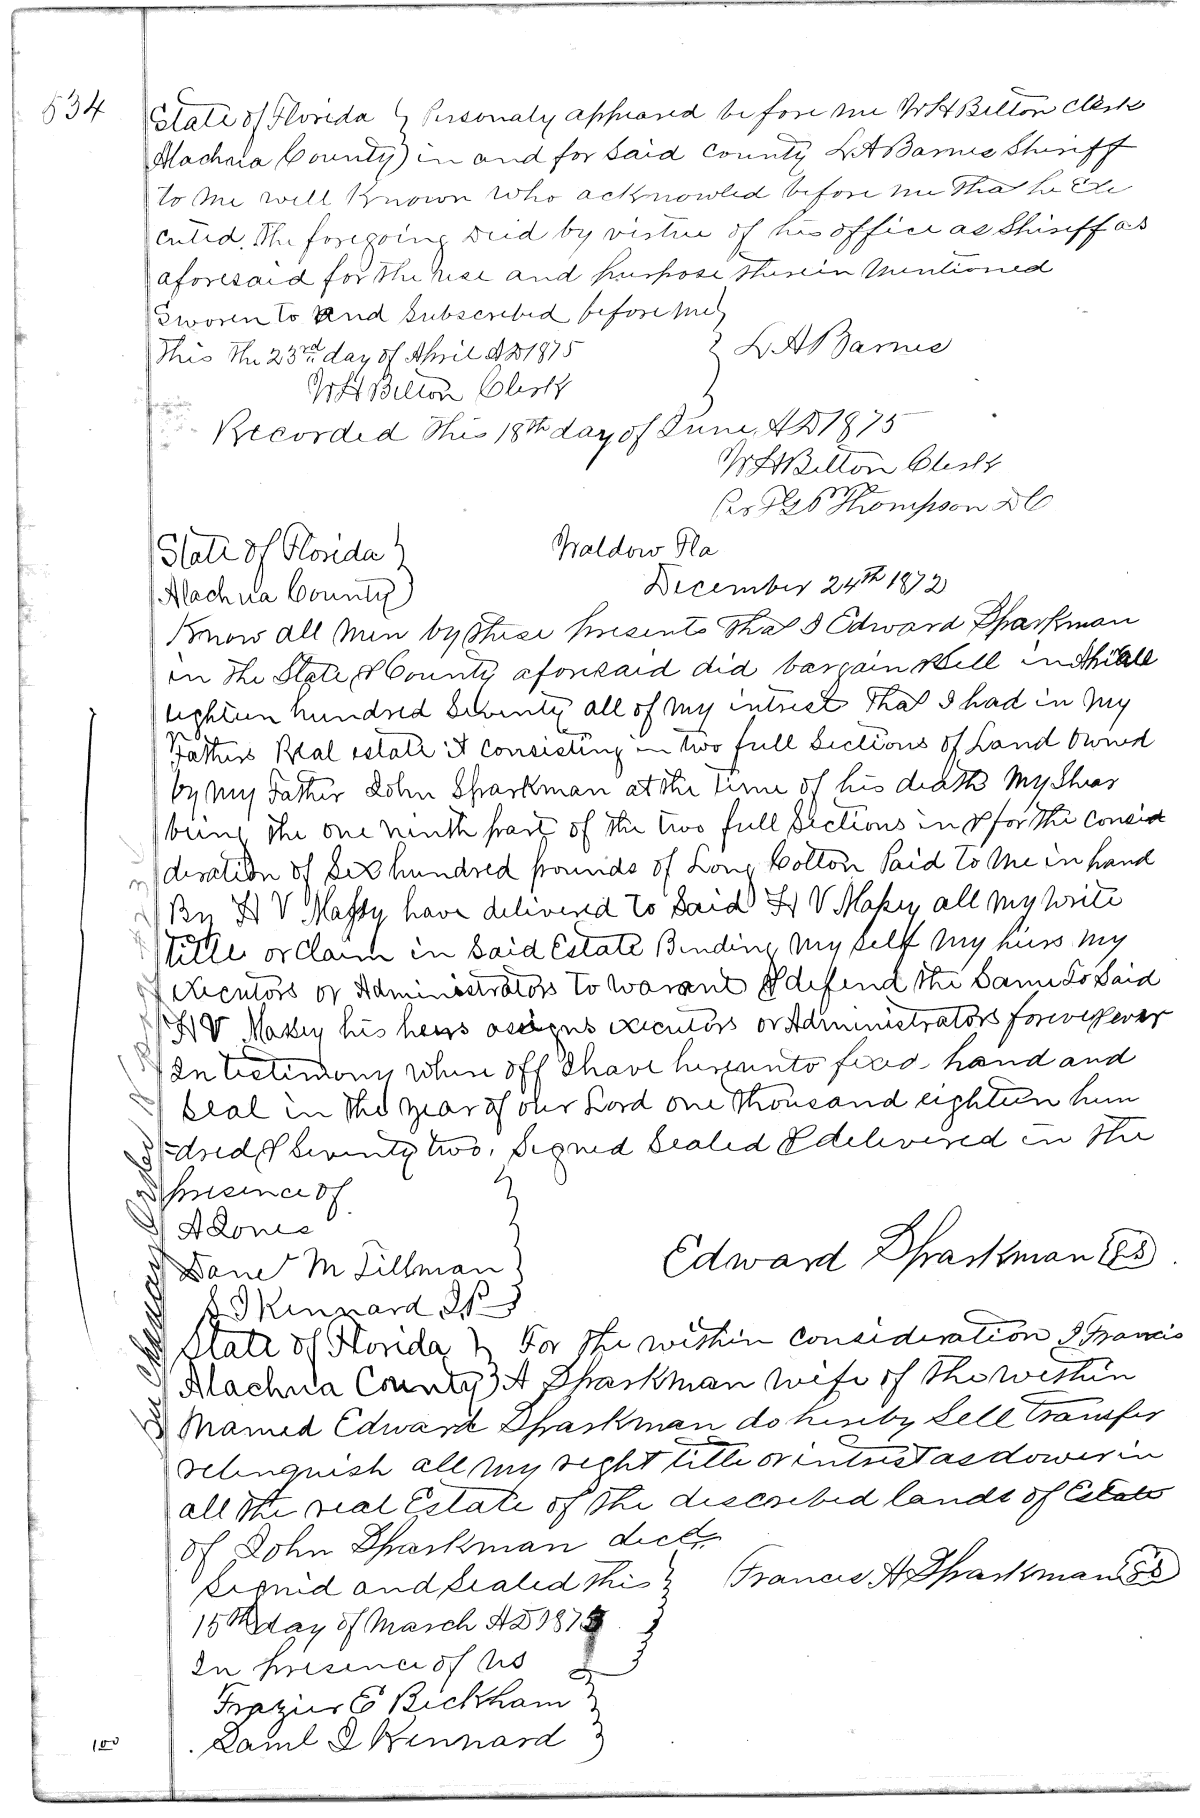 534
State of Florida } Personaly appeared before me W H Belton Clerk
Alachua County } in and for Said County L A Barnes Shiriff
to me well Known who acknowled before me that he Exe
cuted. the foregoing Deed by virtue of his office as Shiriff as
aforesaid for the use and purpose therein Mentioned
Sworen to and Subscribed before me }
This the 23rd day of April AD 1875 } L A Barnes
W H Belton Clerk
Recorded this 18th day of June, AD 1875
W H Belton Clerk
Thompson D C
State of Florida } Waldow Fla
Alachua County } December 24th 1872
Know all Men by these presents That I Edward Sparkman
in the State & County aforesaid did bargain & Sell in
eighteen hundred Seventy all of my intrest That I had in My
Fathers Real estate it consisting in two full Sections of Land Owned
by my Father John Sparkman at the Time of his death My Shear
being the one ninth part of the two full Sections in & for the consid
deration of Six hundred pounds of Long Cotton Paid to me in hand
By H V Maxey have delivered to Said H V Maxey all my write
title or Claim in Said Estate Binding My Self My hiers my
executors or Administrators to warant & defend the Same To Said
H V Maxey his heirs assigns executors or Administrators forever
In testimony where off I have hereunto fixed hand and
Seal in the year of our Lord one thousand eighteen hun
=dred & Seventy two, Signed Sealed & delivered in the
presence of
A Jones
M Tillman Edward Sparkman
S J Kennard J.P.
State of Florida } For the within consideration I Francis
Alachua County } A Sparkman wife of the within
Named Edward Sparkman do hereby Sell transfer
relinquish all my right title or intrest as dower in
all the real Estate of the described lands of Estate
of John Sparkman decd.
Signid and Sealed this } Francis. A Sparkman
15th day of March AD 187
In presence of us
Frazier E Bickham
Saml J Kennard
100